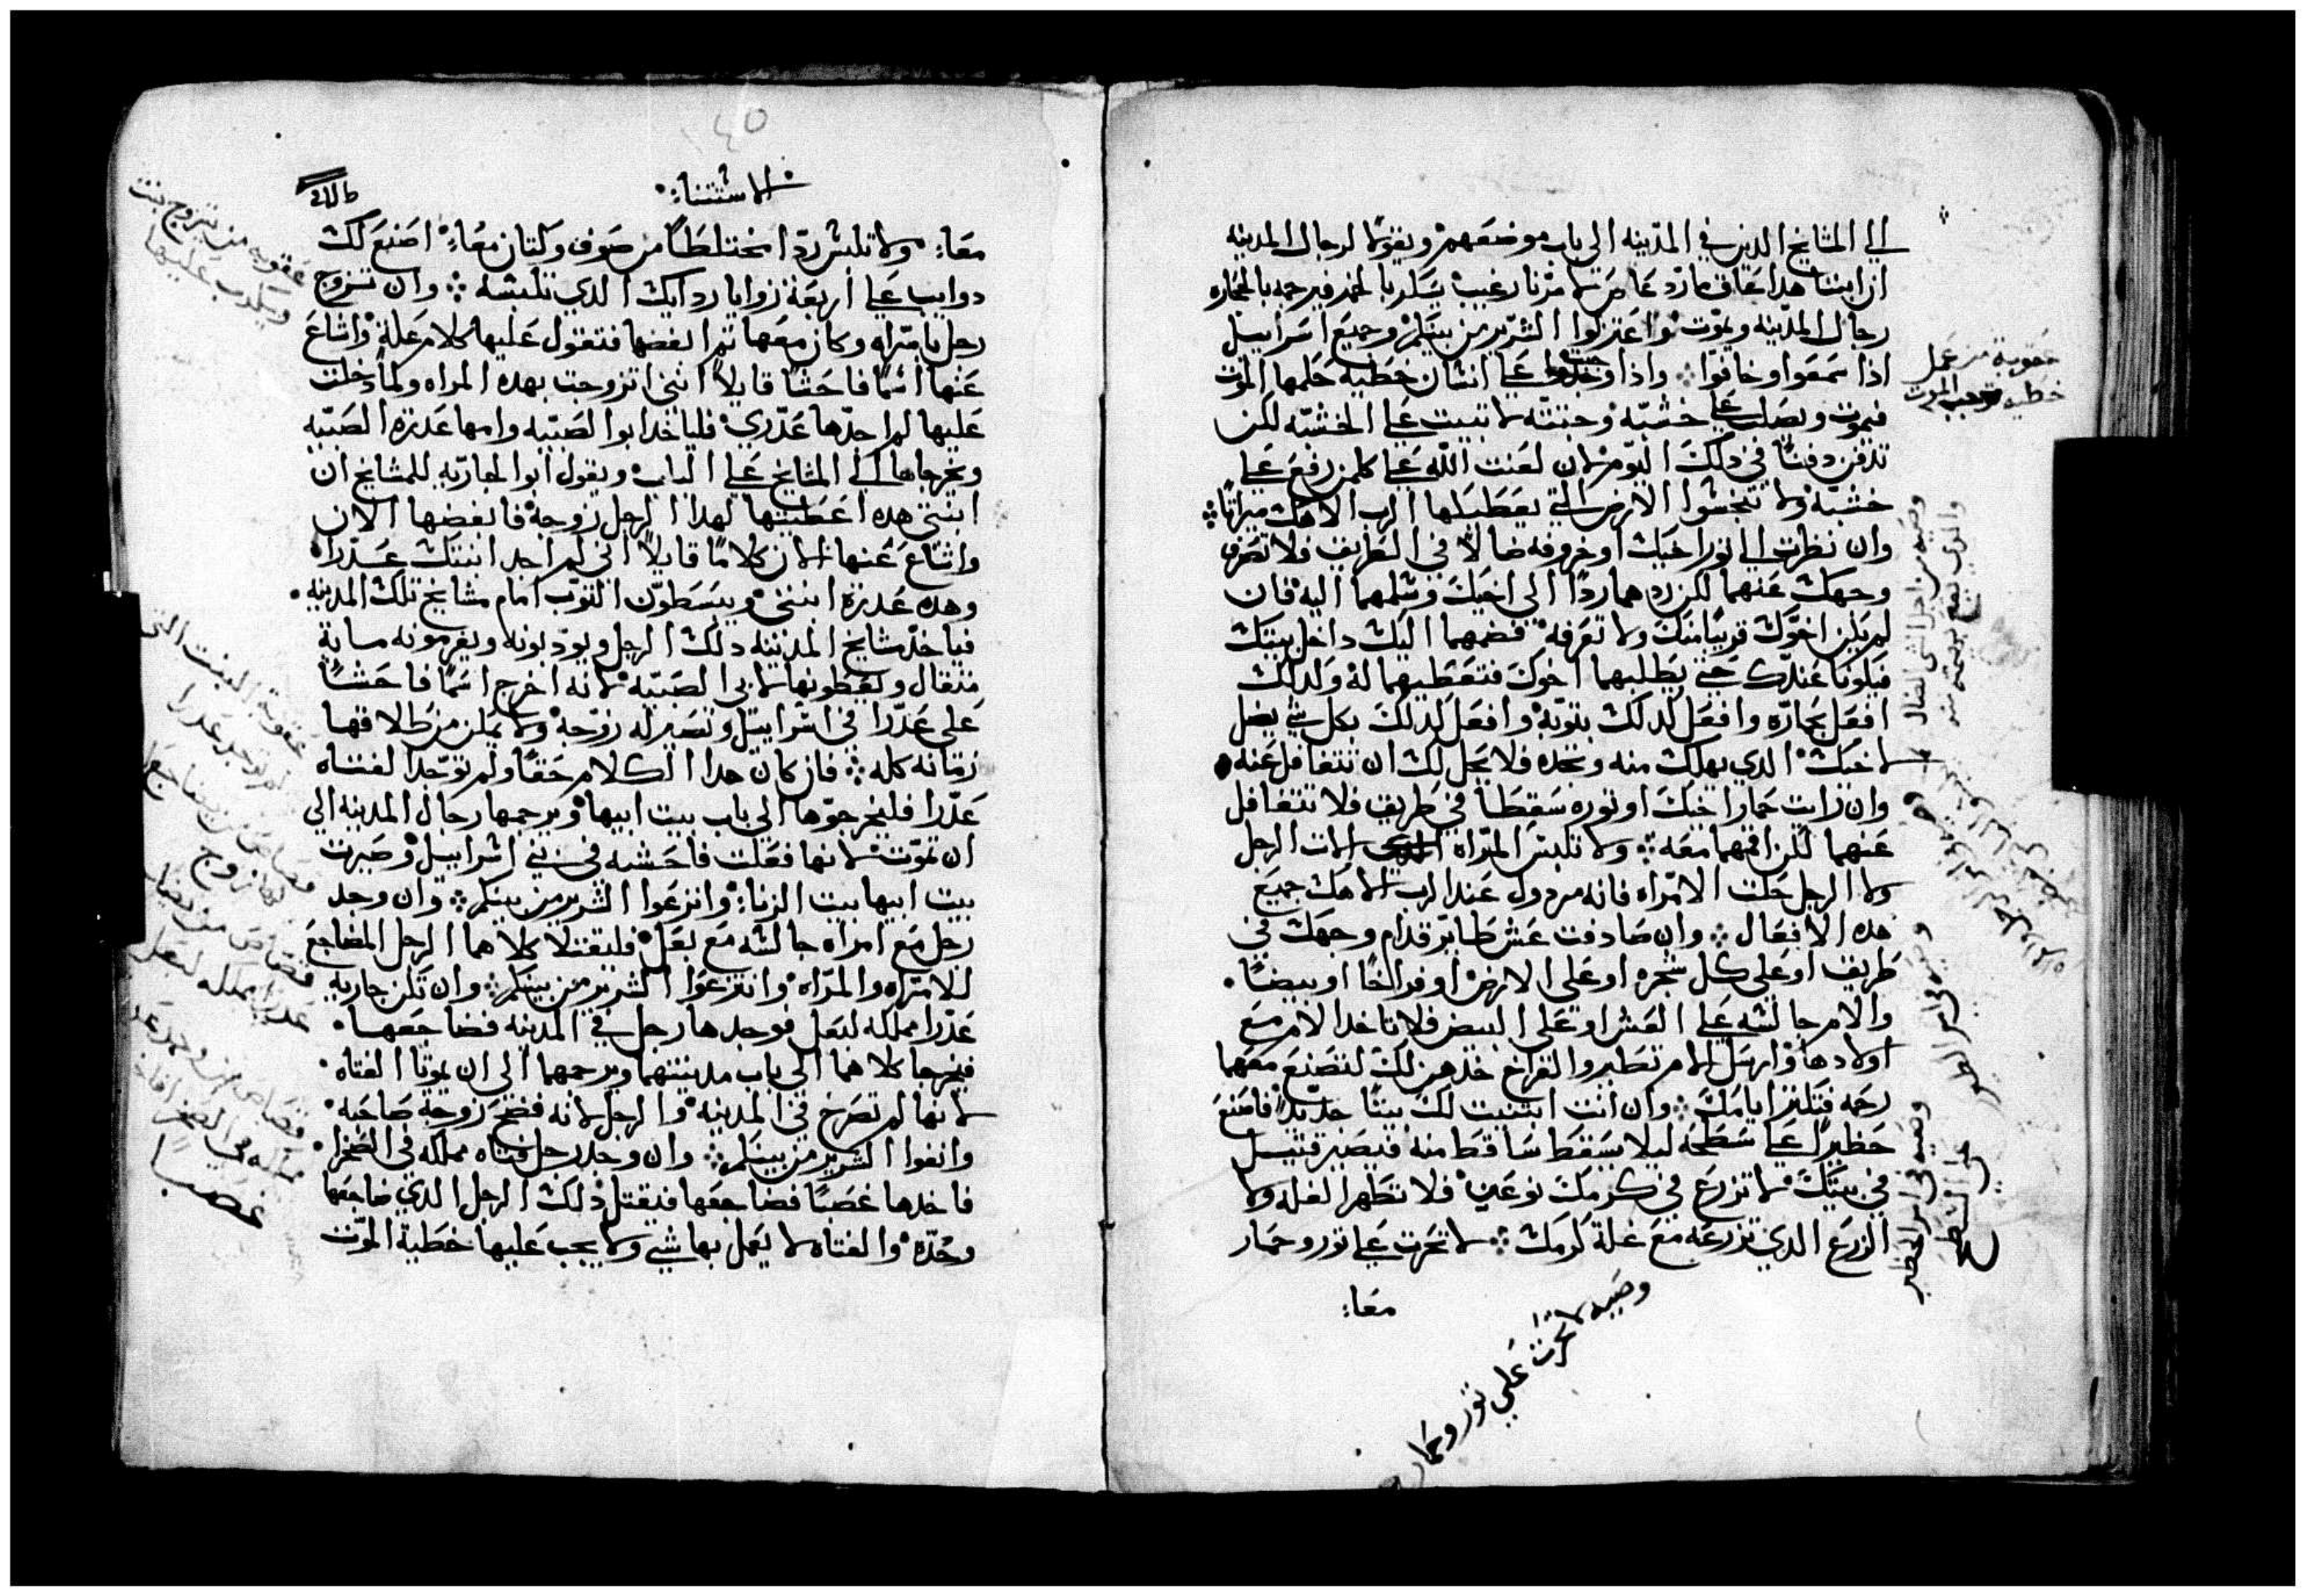 الي المشايخ الدين في المدينه الي باب موضعهم ويقولا لرجال المدينه
ان ابننا هدا عاق مارد عاص لامرنا رغيب يسكر بالخمر فيرجمه بالحجاره
رجال المدينه ويموت واعتزلوا الشرير من بينكم وجميع اسراييل
ادا سمعوا وخافوا ⁘ وادا وجبت علي انسان خطيه حكمها الموت
فيموت وصلب علي خشبه وجتته لا تبيت علي الخشبه لكن
تدفن دفنًا في دلك اليوم لان لعنت الله علي كلمن رفع علي
خشبه ولا تنجسوا الارض التي يعطيكها الرب الاهك ميراتًا ⁘
وان نظرت الي تور اخيك او خروفه ضالاً في الطريق فلا تصرف
وجهك عنهما لكن ردهما ردًا الي اخيك وسلمهما اليه فان
لم يكن اخوك قريبًا منك ولا تعرفه فضمهما اليك داخل بيتك
فيكونا عندك حتي يطلبهما اخوك فتعطيهما له وكدلك
افعل بحماره وافعل كدلك بتوبه وافعل كدلك بكل شي يضل
لاخيك الدي يهلك منه وتجده فلا يحل لك ان تتغافل عنه
وان رايت حمار اخيك او توره سقطا في طريق فلا تتغافل
عنهما لكن اقمهما معه ⁘ ولا تلبس المراه الات الرجل
ولا الرجل حلت الامراه فانه مردول عند الرب الاهك جميع
هده الافعال ⁘ وان صادفت عش طاير قدام وجهك في
طريق او علي كل شجره او علي الارض او فراخًا او بيضًا
والام جالسه علي العش او علي البيض فلا تاخد الام مع
اولادها وارسل الام تطير والفراخ خدهن لك لتصنع معهما
رحمه فتكتر ايامك ⁘ وان انت ابتنيت لك بيتًا جديدًا فاصنع
حظيرًا علي سطحه ليلا يسقط ساقط منه فيصير قتيل
في بيتك لا تزرع في كرمك نوعين فلا تطهر الغله ولا
الزرع الدي تزرعه مع غلة كرمك ⁘ لا تحرت علي تور وحمار
معًا:
عقوبة من عمل
خطيه توجب الموت
وصيه من اجل الشي الضال
والدي يقع
وصيه في امر الحظير
علي السطح
وصيه لا تحرت علي تور وحمار
الاستتنا:
معًا: ولا تلبس ردا مختلطًا من صوف وكتان معًا: اصنع لك
دوايب علي اربعة زوايا ردايك الدي تلبسه ⁘ وان تزوج
رجل بامراه وكان معها تم ابغضها فتقول عليها كلام علة واشاع
عنها اسمًا فاحشًا قايلاً انني اتزوجت بهده المراه ولما دخلت
عليها لم اجدها عدري فلياخدا ابوا الصبيه وامها عدرة الصبيه
ويخرجاها الي المشايخ علي الباب ويقول ابوا الجاريه للمشايخ ان
ابنتي هده اعطيتها لهدا الرجل زوجة فابغضها الان
واشاع عنها الان كلامًا قايلاً اني لم اجد ابنتك عدرا
وهده عدرة ابنتي ويبسطون التوب امام مشايخ تلك المدينه
فياخد مشايخ المدينه دلك الرجل ويودبونه ويغرمونه ماية
متقال ويعطونها لابي الصبيه لانه اخرج اسمًا فاحشًا
علي عدرا في اسراييل وتصير له زوجه ولا يمكن من طلاقها
زمانه كله ⁘ فان كان هدا الكلام حقًا ولم توجد الفتاه
عدرا فليخرجوها الي باب بيت ابيها ويرجمها رجال المدينه الي
ان تموت لانها فعلت فاحشه في بني اسراييل وصيرت
بيت ابيها بيت الزنا: وانزعوا الشرير من بينكم ⁘ وان وجد
رجل مع امراه جالسه مع بعل فليقتلا كلاهما الرجل المضاجع
للامراه والمراه وانتزعوا الشرير من بينكم ⁘ وان تكن جاريه
عدرا مملكه لبعل فوجدها رجل في المدينه فضاجعها
فيخرجا كلاهما الي باب مدينتهما ويرجمهما الي ان يموتا الفتاه
لانها لم تصرخ في المدينه والرجل لانه فضح زوجة صاحبه
وانفوا الشرير من بينكم ⁘ وان وجد رجل فتاه مملكه في الصحرا
فاخدها غصبًا فضاجعها فيقتل دلك الرجل الدي ضاجعها
وحده والفتاه لا يعمل بها شي ولا يجب عليها خطية الموت
عقوبه من يتزوج بنت
ويكدب عليها
عقوبة البنت التي
لم توجد عدرا
قصاص من يضاجع
قصاص من يضاجع
عدرا مملكه لبعل
غصبًا